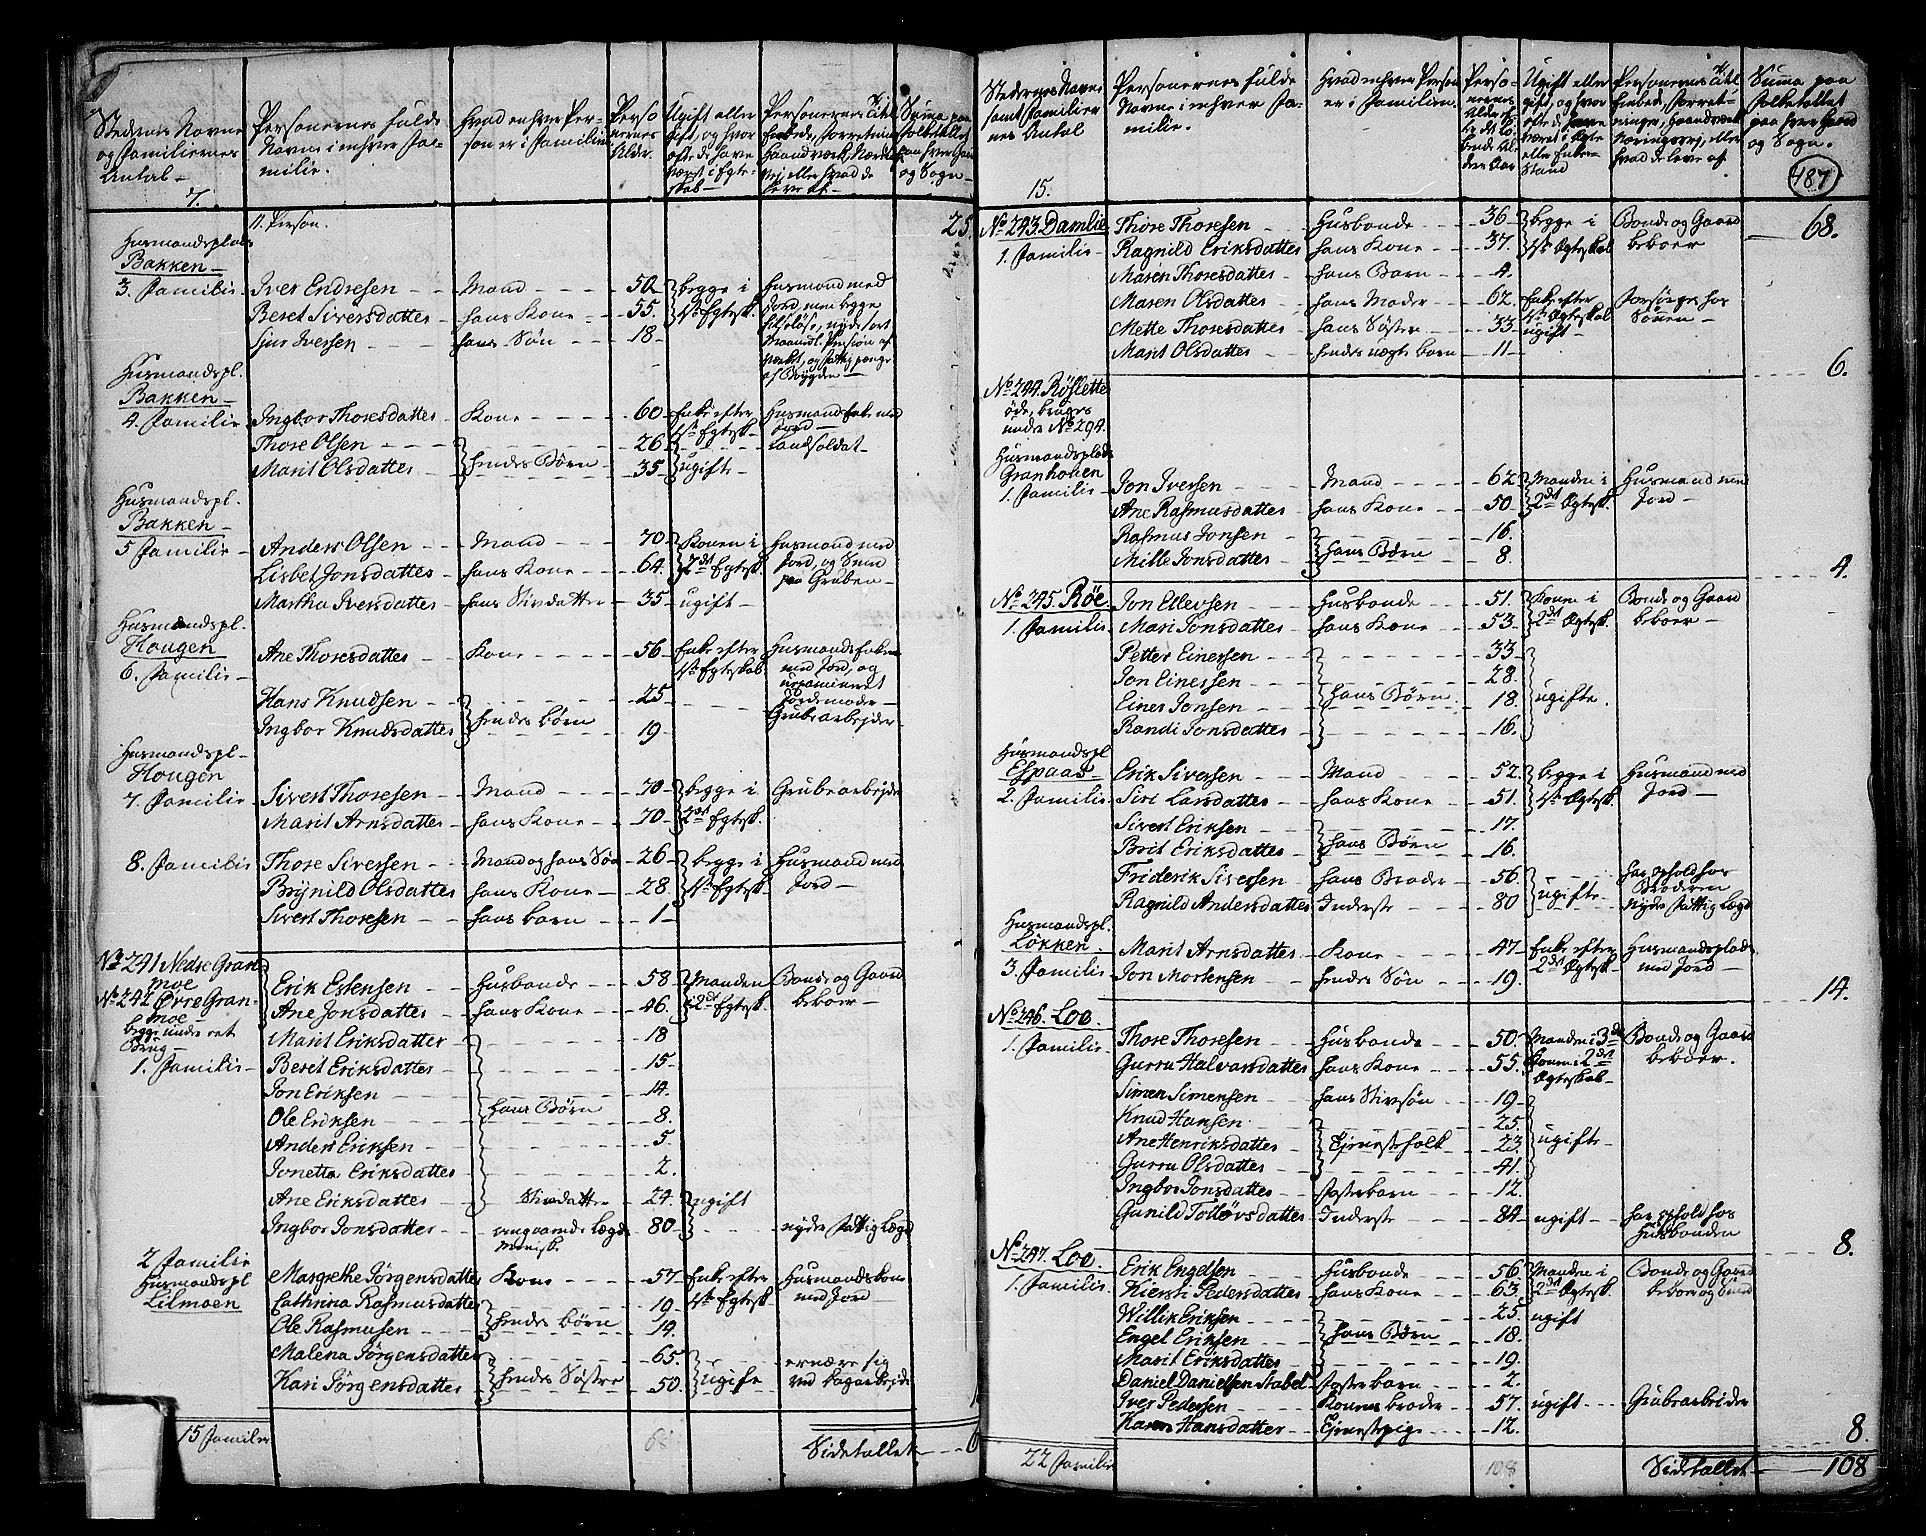 Stedernes Navne og Familiernes Antal
Personernes fulde Navne i enhver Familie.
hvad enhver Person er i Familien
Personernes Alder.
Ugift eller Gift, og hvor ofte de have været i Egteskab
Personernes Titel, Embede, Forretning, Haandværk, Næringsvej eller hvad de leve af
Summa paa folketallet paa hver Gaard og Sogn
7. 11. Person. 25.
Husmandsplads
Bakken
3. Familie Iver Endresen Mand 50 begge i 1ste Egtesk. Husmand med
Beret Siversdatter hans Kone 55. Jord men begge
Sjur Iversen hans Søn 18
Husmandspl.
Bakken
4. Familie Ingbor Thoresdatter Kone 60 Enke efter 1ste Egtesk. Husmandsenke med Jord
Thore Olsen hendes Børn 26 ugifte Landsoldat
Marit Olsdatter 35
Husmandspl.
Bakken
5 Familie Anders Olsen Mand 70 Konen i 2det Egtesk. Husmand med
Lisbet Jonsdatter hans Kone 64. Jord, og Smed
Martha Iversdatter hans Stivdatter 35 ugift paa Gruben
Husmandspl.
Hougen
6. Familie Ane Thoresdatter Kone 56 Enke efter 1ste Egteskab Husmandsenke med Jord, og uexamineret Jordemoder
Hans Knudsen hendes børn 25 Grubearbejder
Ingbor Knudsdatter 19
Husmandspl
Hougen
7. Familie Sivert Thoresen Mand 70 begge i 2det Egtesk. Grubearbejder
Marit Arnsdatter hans Kone 70
8. Familie Thore Siversen Mand og hans Søn 26 begge i 1ste Egtesk. Husmand med Jord
Brynild Olsdatter hans Kone 28.
Sivert Thoresen hans barn 1
No 241 Nedre Granmoe
No 242 Øvre Granmoe
begge under eet Brug
1. Familie
Erik Estensen Husbonde 58 Manden i 2det Egtesk. Bonde og Gaard beboer
Ane Jonsdatter hans Kone 46.
Marit Eriksdatter hans Børn 18
Beret Eriksdatter 15
Jon Eriksen 14.
Ole Eriksen 8.
Anders Eriksen 5
Jonetta Eriksdatter 2.
Ane Eriksdatter Stivdatter 24 ugift
Ingbor Jonsdatter omgaaende Lægdemenisk 80 nyder Fattig Lægd
2 Familie
Husmandspl
Lilmoen
Margrethe Jørgensdatter Kone 57 Enke efter 1ste Egtesk. Husmandskone med Jord
Cathrina Rasmusdatter hendes børn 19
Ole Rasmusen 14.
Malena Jørgensdatter hendes Søstre 65. ugifte ernære sig ved haandarbejde
Kari Jørgensdatter 50.
15 Familier 68 Sidetallet
Stedernes Navne samt Familiernes Antal
Personernes fulde Navne i enhver Familie.
Hvad enhver Person er i Familien
Ugift eller gift, og hvor ofte de have været i Egte eller Enkestand
Personernes Titel, Embede, Forretninger, Haandværk Næringsvej, eller hvad de leve af
Summa paa folketallet paa hver Gaard og Sogn.
15. 487
No 243 Damlie Thore Thoresen Husbonde 36. begge i 1ste Egteskab Bonde og Gaard beboer 68.
1. Familie Ragnild Eriksdatter hans Kone 37.
Maren Thoresdatter hans Barn 4.
Maren Olsdatter hans Moder 62. Enke efter 1ste Egteskab Forsørges hos Sønen
Mette Thoresdatter hans Søster 33. ugift
Marit Olsdatter hendes uegte barn 11
6.
No 244. Røslette
øde, bruges under No 294.
Husmandsplads
Granhouen
1. Familie Jon Iversen Mand 62 Manden i 2det Egtesk. Husmand med Jord
Ane Rasmusdatter hans Kone 50
Rasmus Jonsen hans Børn 16.
Mille Jonsdatter 8.
4.
No 245. Røe Jon Ellevsen Husbonde 51. Konen i 2det Egtesk. Bonde og Gaard beboer
1. Familie Mari Jonsdatter hans Kone 53.
Petter Einersen hans Børn 33 ugifte.
Jon Einersen 28.
Einer Jonsen 18
Randi Jonsdatter 16.
Husmandspl
Espaas
2. Familie Erik Siversen Mand 52. begge i 1ste Egtesk. Husmand med Jord
Siri Larsdatter hans Kone 51.
Sivert Eriksen hans Børn 17.
Brit Eriksdatter 16.
Friderik Siversen hans Broder 56 ugifte har ophold hos Broderen
Ragnild Andersdatter Inderste 80 nyder Fattig Lægd
Husmandspl.
Løkken
3. Familie Marit Arnsdatter Kone 47 Enke efter 2det Egtesk. Husmandsplads med Jord
Jon Mortensen hendes Søn 19.
14.
No 246. Loe
1. Familie Thore Thoresen Husbonde 50. Manden i 3de Konen i 2det Egteskab Bonde og Gaard beboer.
Gurru Halvarsdatter hans Kone 55
Simen Simensen hans Stivsøn 19 ugifte
Knud Hansen Tjenestefolk 25.
Ane Henriksdatter 23.
Gurru Olsdatter 41.
Ingbor Jonsdatter fosterbarn 12.
Gunild Tolløvsdatter Inderste 84 ugift har ophold hos Husbonden
8.
No 247. Loe
1. Familie Erik Engelsen Husbonde 56 Manden i 2det Egtesk. Bonde og Gaard beboer og Smed
Kiersti Pedersdatter hans Kone 63.
Willik Eriksen hans Børn 25 ugift
Engel Eriksen 18.
Marit Eriksdatter 19.
Daniel Danielsen Stabel fosterbarn 2.
Iver Pedersen Konens broder 57. ugift Grubearbeider
Karen Hansdatter Tjenestepige 12.
8.
22 Familie 108 Sidetallet 108